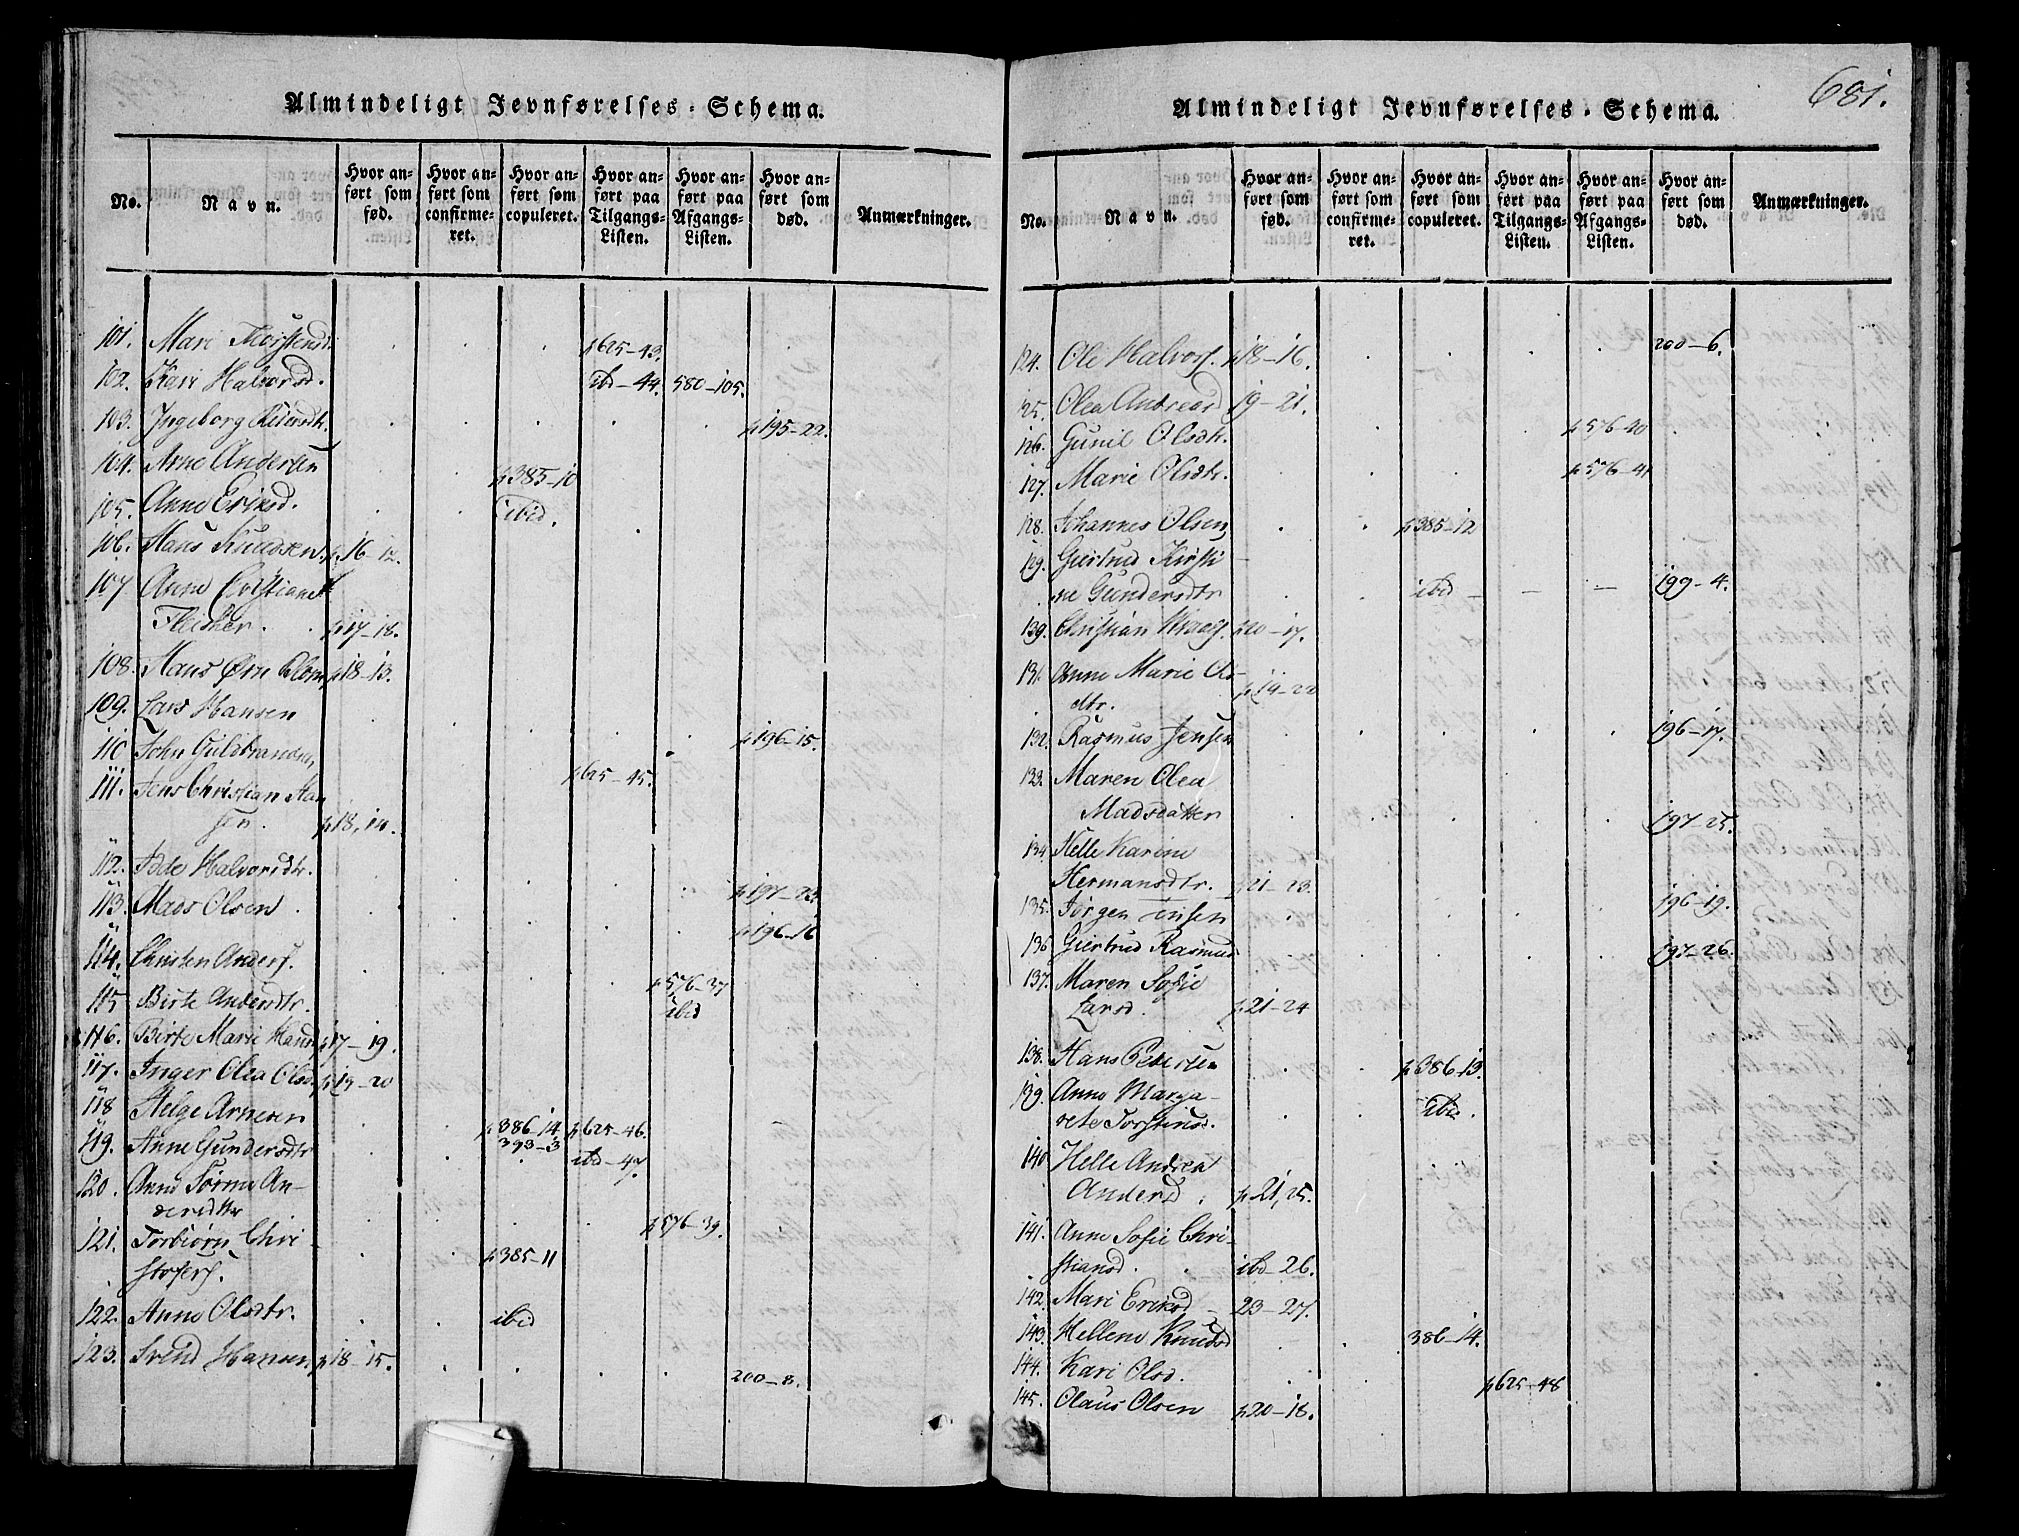 Almindeligt Jevnførelses-Schema.
No. Navn. Hvor anført som fød. Hvor anført som confirmeret. Hvor anført som copuleret. Hvor anført paa Tilgangs-Listen. Hvor anført paa Afgangs-Listen. Hvor anført som død. Anmærkninger.
101. Mari Thorstensd. p625-43.
102. Kari Halvorsd. ibd-44. 580-105.
103. Ingeborg p195-22.
104. Arne Andersen p385-10
105. Anne Eriksd. ibid.
106. Hans Knudsen. p16-12.
107 Anne
Fleisher. p17-18.
108. Hans Ørn Blom p18-13.
109. Lars Hansen p196-15.
110 John Guldbrandsen p625-45.
111. Jens Christian Han
sen. p18, 14.
112. Halvorsdtr. p197-23
113. Mads Olsen p196-16
114. Christen Anders. p576-37
115 Birte Andersdtr. ibid
116. Birte Marie Hansd p17-19.
117. Inger Olea Olsd. p19-20
118 Helge Arnesen p386-14 p625-46.
119. Anne Gundersdtr 393-3 ibd-47.
120. Anne An-
dersdtr p576-39.
121. Torbiørn Chri-
stofers. p385-11
122. Anne Olsdtr. ibid
123. Svend Hansen p18-15. 200-8.
681.
Almindeligt Jevnførelses-Schema.
No. Navn. Hvor anført som fød. Hvor anført som confirmeret. Hvor anført som copuleret. Hvor anført paa Tilgangs-Listen. Hvor anført paa Afgangs-Listen. Hvor anført som død. Anmærkninger.
124. Ole Halvors. p18-16. 200-6.
125. Olea Andreasd 19-21.
126. Gunil Olsdtr. p576-40
127. Marie Olsdtr. p576-41
128. Johannes Olsen p385-12
129. Giertrud Kirsti-
ne Gundersdtr ibid - - - 199-4.
139. Christian p20-17.
131. Anne Marie Ols-
dtr. p19-22
132. Rasmus Jensen 196-17.
133. Maren Olea
Madsdatter 197-25.
134 Helle Karine
Hermansdtr. p21-23.
135. Jørgen Jensen 196-19.
136 Giertrud Rasmusd 197-26.
137. Maren Sofie
Larsd. p21-24
138. Hans Petersen p386-13.
139. Anne Marga-
rete Torstensd. ibid.
140 Helle Andrea
Andersd. p21, 25.
141. Anne Sofie Chri-
stiansd. ibd-26.
142. Mari Eriksd - 23-27.
143. Hellene Knudsd 386-14.
144. Kari Olsd. p625-48
145. Olaus Olsen p20-18.